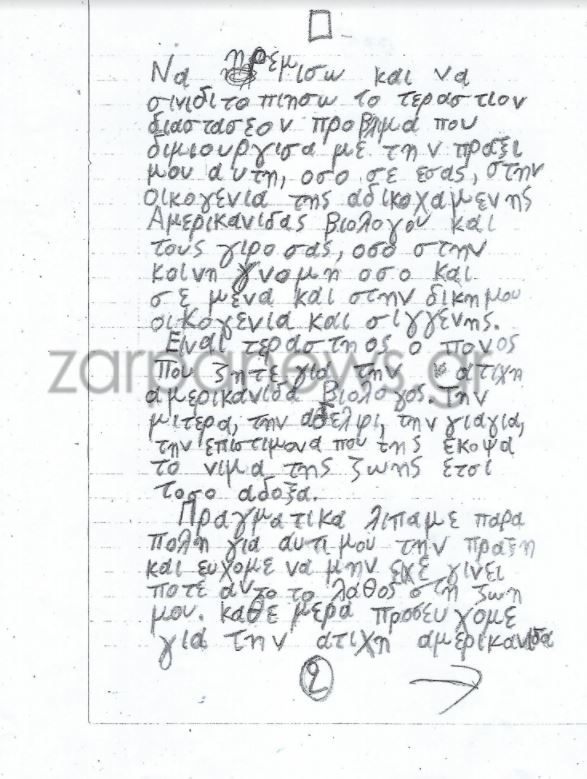 Να ηρεμισω και να
σινιδιτοπιησω το τεραστιον
διαστασεον προβλημα που
διμιουργισα με την πραξι
μου αυτη, οσο σε εσας, στην
οικογενια της αδικοχαμενης
Αμερικανιδας βιολογου και
τους γιρο σας, οσο στην
κοινη γνομη οσο και
σε μενα και στην δικη μου
οικογενια και σιγγενης.
Ειναι τεραστηος ο πονος
που ζητε για την ατιχη
αμερικανιδα βιολογος. Την
μιτερα, την αδελφι, την γιαγια,
την επιστιμονα που της εκοψα
το νιμα της ζωης ετσι
τοσο αδοξα.
Πραγματικα λιπαμε παρα
πολη για αυτι μου την πραξη
και ευχομε να μην εχε γινει
ποτε αυτο το λαθος στη ζωη
μου. καθε μερα προσευχομε
για την ατιχη αμερικανιδα
2
zarpanews.gr